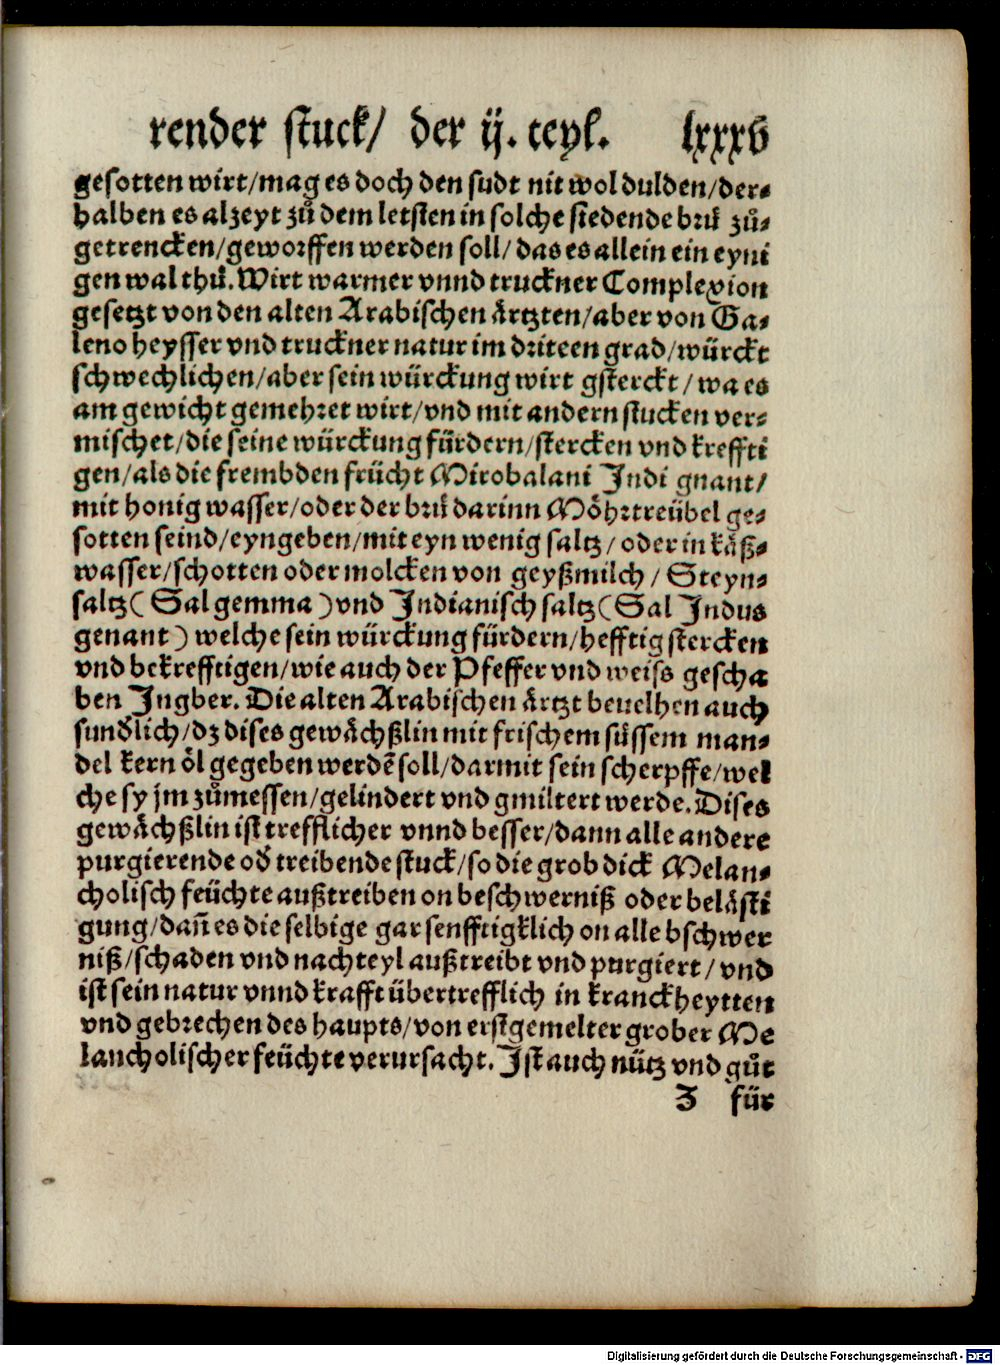 render stuck/ der ij. teyl. lxxxv
gesotten wirt/mag es doch den sudt nit wol dulden/der⸗
halben es alzeyt zů dem letsten in solche siedende brů zů⸗
getrencken/geworffen werden soll/das es allein ein eyni
gen wal thů. Wirt warmer vnnd truckner Complexion
gesetzt von den alten Arabischen ärtzten/aber von Ga⸗
leno heysser vnd truckner natur im dritten grad/würckt
schwechlichen/aber sein würckung wirt gsterckt/wa es
am gewicht gemehret wirt/vnd mit andern stucken ver⸗
mischet/die seine würckung fürdern/stercken vnd kreffti
gen/als die frembden frücht Mirobalani Indi gnant/
mit honig wasser/oder der brů darinn Möhrtreübel ge⸗
sotten seind/eyngeben/mit eyn wenig saltz/oder in käß⸗
wasser/schotten oder molcken von geyßmilch/ Steyn⸗
saltz( Sal gemma )vnd Indianisch saltz(Sal Indus
genant) welche sein würckung fürdern/hefftig stercken
vnd bekrefftigen/wie auch der Pfeffer vnd weiss gescha
ben Ingber. Die alten Arabischen ärtzt beuelhen auch
sunďlich/dz dises gewächßlin mit frischem sůssem man⸗
del kern öl gegeben werdē soll/darmit sein scherpffe/wel
che sy jm zůmessen/gelindert vnd gmiltert werde. Dises
gewächßlin ist trefflicher vnnd besser/dann alle andere
purgierende oď treibende stuck/so die grob dick Melan⸗
cholisch feüchte außtreiben on beschwerniß oder belästi
gung/dañ es die selbige gar senfftigklich on alle bschwer
niß/schaden vnd nachteyl außtreibt vnd purgiert/vnd
ist sein natur vnnd krafft übertrefflich in kranckheytten
vnd gebrechen des haupts/von erstgemelter grober Me
lancholischer feüchte verursacht. Ist auch nütz vnd gůt
Z für
Digitalisierung gefördert durch die Deutsche Forschungsgemeinschaft - DFG